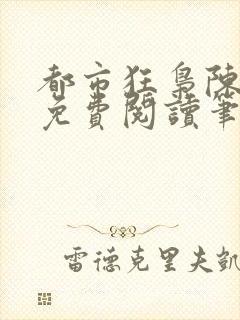 都市狂梟陳
免費閱讀筆
雷德克里夫凱